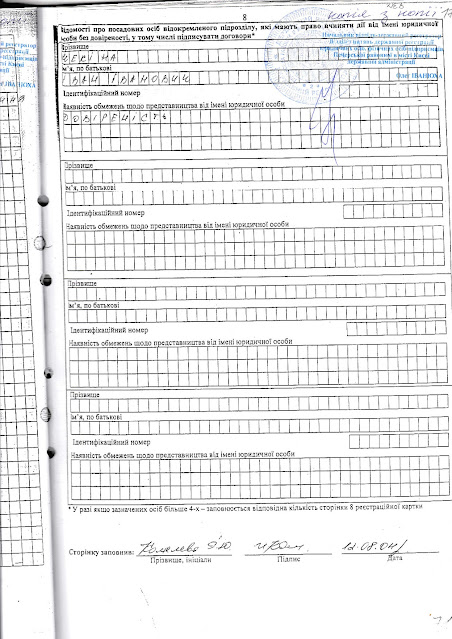 8
Відомості про посадових осіб відокремленого підрозділу, які мають право вчиняти дії від імені юридичної
особи без довіреності, у тому числі підписувати договори*
Прізвище
Ім'я, по батькові
ІВАН ІВАНОВИЧ
Ідентифікаційний номер
Наявність обмежень щодо представництва від імені юридичної особи
ДОВІРЕНІСТЬ
Прізвище
Ім'я, по батькові
Ідентифікаційний номер
Наявність обмежень щодо представництва від імені юридичної особи
Прізвище
Ім'я, по батькові
Ідентифікаційний номер
Наявність обмежень щодо представництва від імені юридичної особи
Прізвище
Ім'я, по батькові
Ідентифікаційний номер
Наявність обмежень щодо представництва від імені юридичної особи
* У разі якщо зазначених осіб більше 4-х – заповнюється відповідна кількість сторінки 8 реєстраційної картки
Сторінку заповнив:
Прізвище, ініціали Підпис Дата